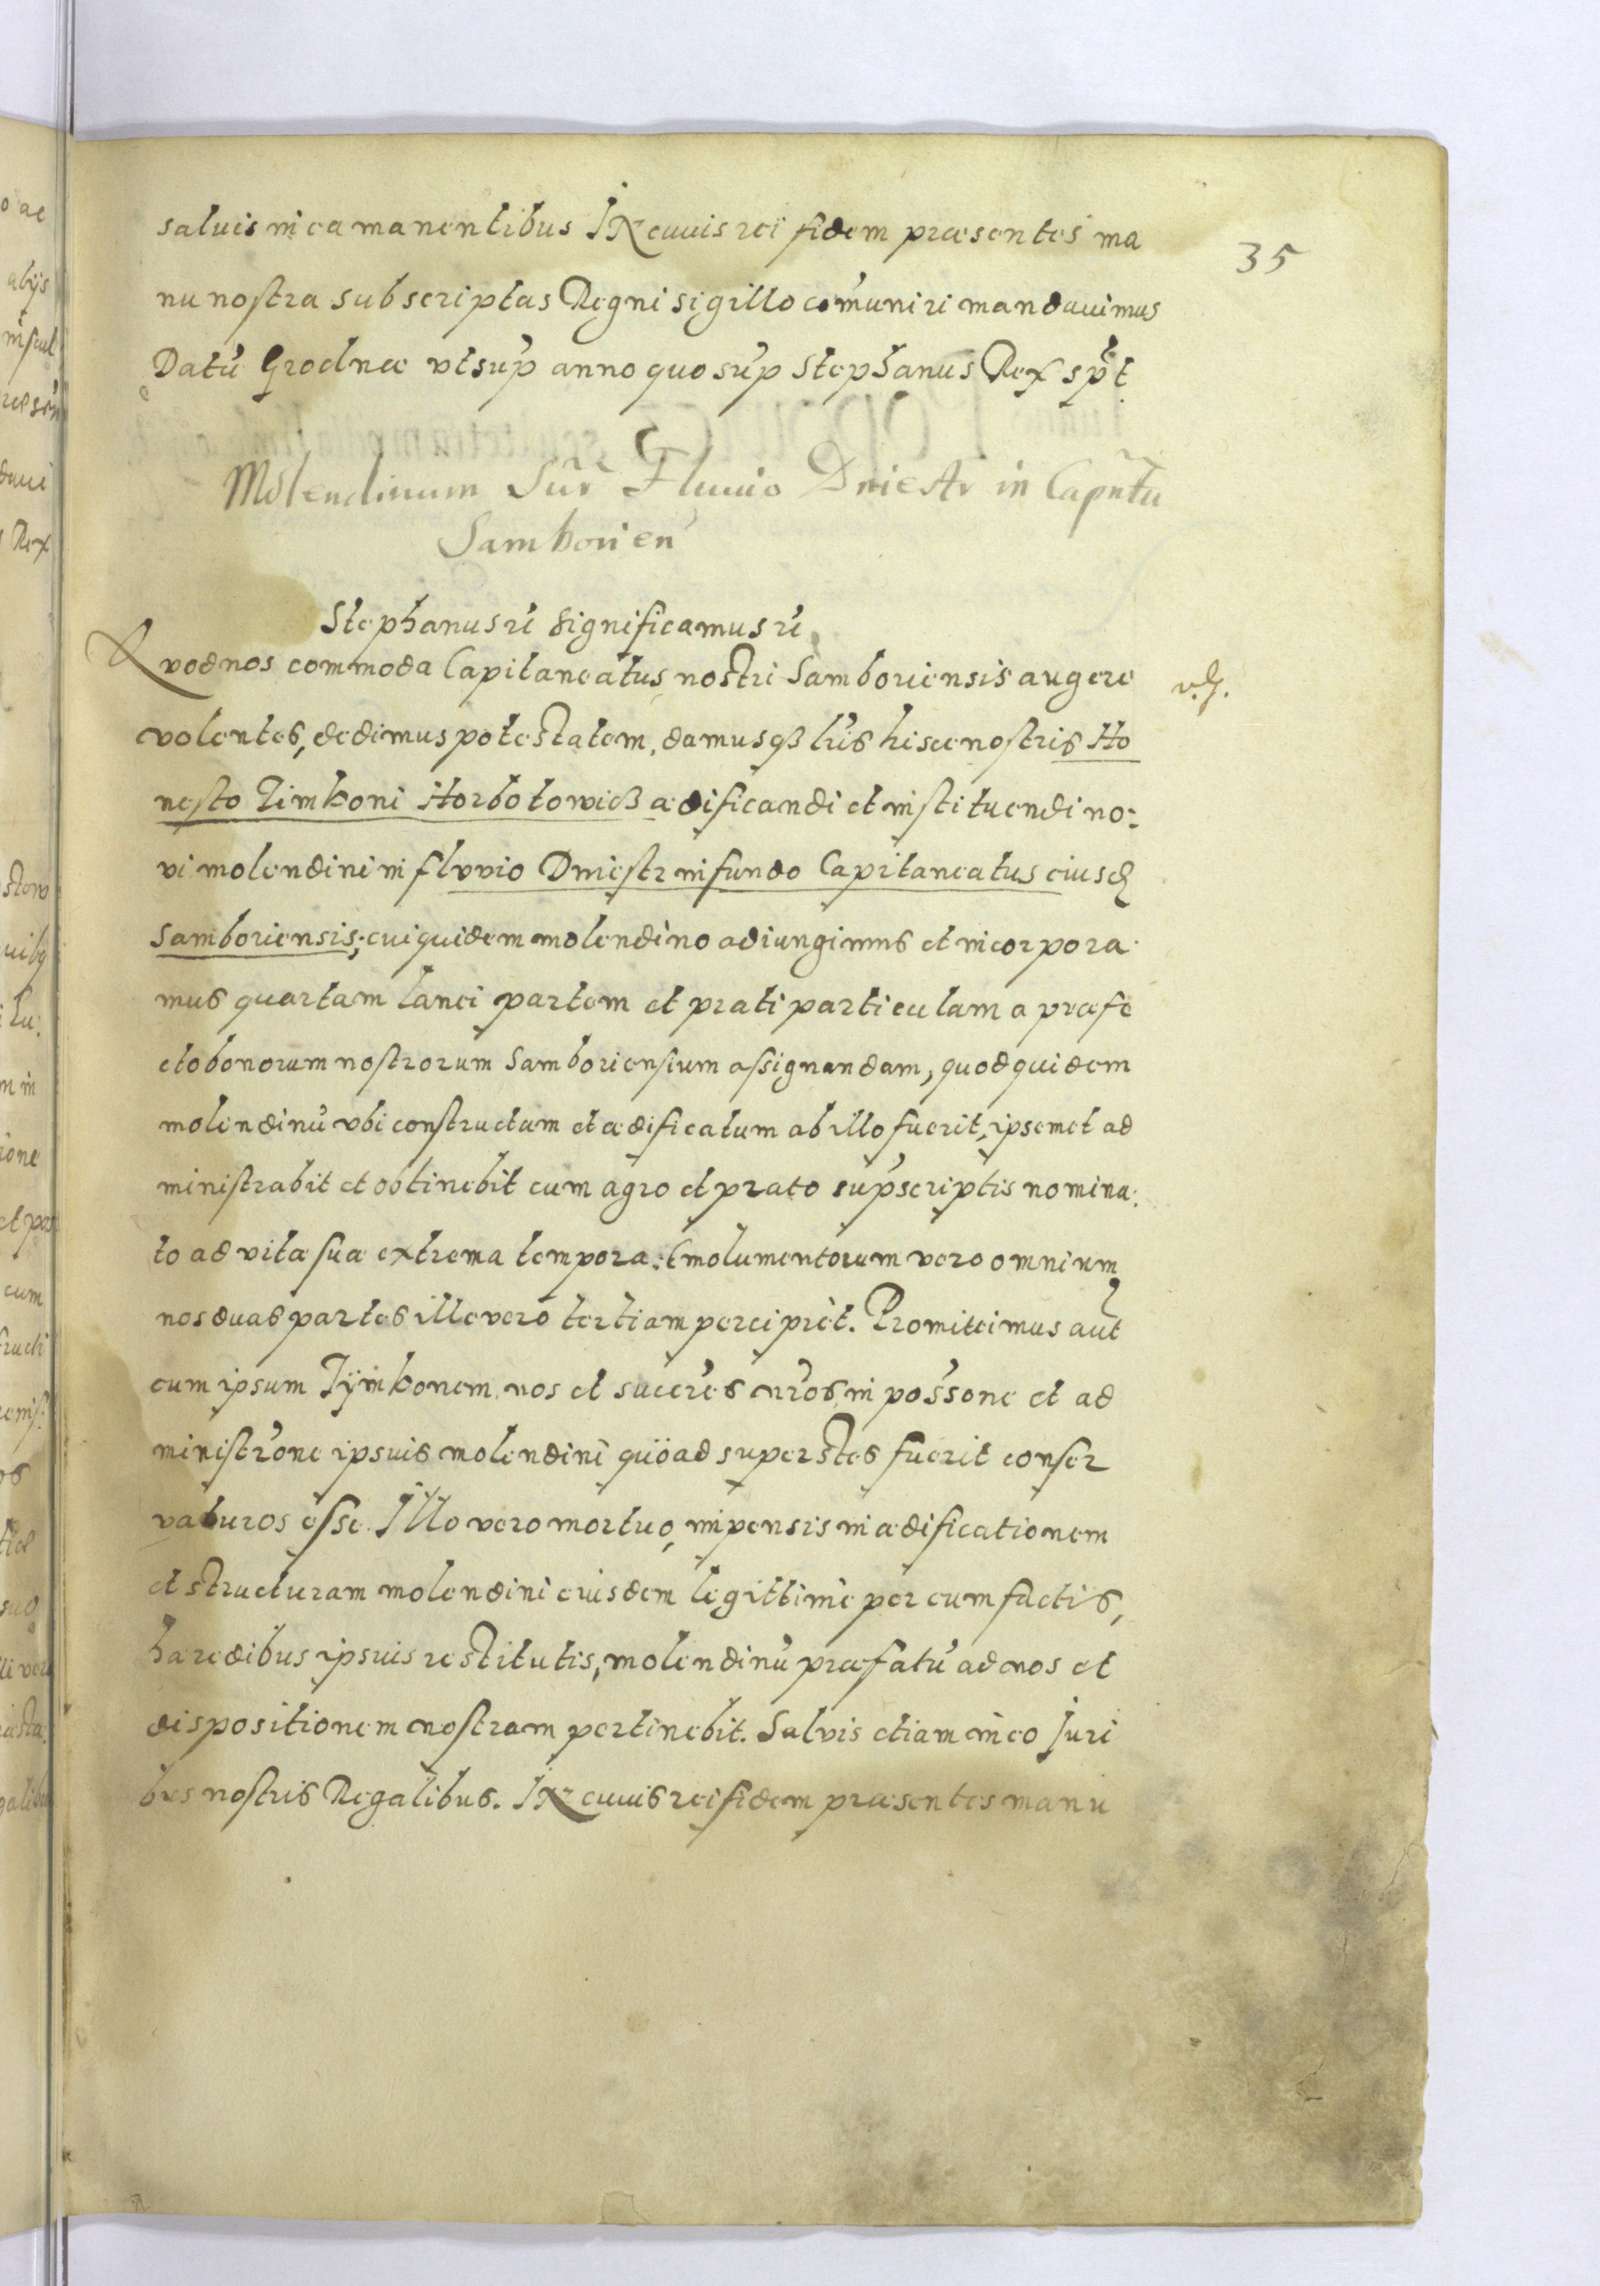 saluis in ea manentibus IN cuuis rei fidem præsentes ma
35
nu nostra subscriptas Regni sigillo com̃uniri mandauimus
Datũ Grodnæ vt sup̃ anno quo sup̃ Stephanus Rex sp̃t
Molendinum Sũr Fluuio Dniestr in Capñtu
Samborien̄
Stephanus rē significamus rē
Qvod nos commoda Capitaneatus nostri Samboriensis augere
volentes, dedimus potestatem, damusqȝ l̃ris hisce nostris Ho
nesto Timkoni Horbotowicz ædificandi et instituendi no:
vi molendini in flvvio Dniestr in fundo Capitaneatus eiusd
Samboriensis; cui quidem molendino adiungimus et incorpora
mus quartam lanei partem et prati particulam a præfe
cto bonorum nostrorum Samboriensium assignandam, quod quidem
molendinũ vbi constructum et ædificatum ab illo fuerit, ipsemet ad
ministrabit et obtinebit cum agro et prato sup̃scriptis nomina:
to ad vitæ suæ extrema tempora. Emolumentorum vero omnium
nos duas partes ille vero tertiam percipiet. Promittimus aut
eum ipsum Tÿmkonem nos et succẽres nr̃os in poss̃one et ad
ministr̃one ipsuis molendini quöad superstes fuerit conser
vaturos esse. Illo vero mortuo, impensis in ædificationem
et structuram molendini eiusdem legittimè per eum factis,
hæredibus ipsuis restitutis, molendinũ præfatũ ad nos et
dispositionem nostram pertinebit. Salvis etiam in eo Juri
bus nostris Regalibus. IN cuuis rei fidem præsentes manu